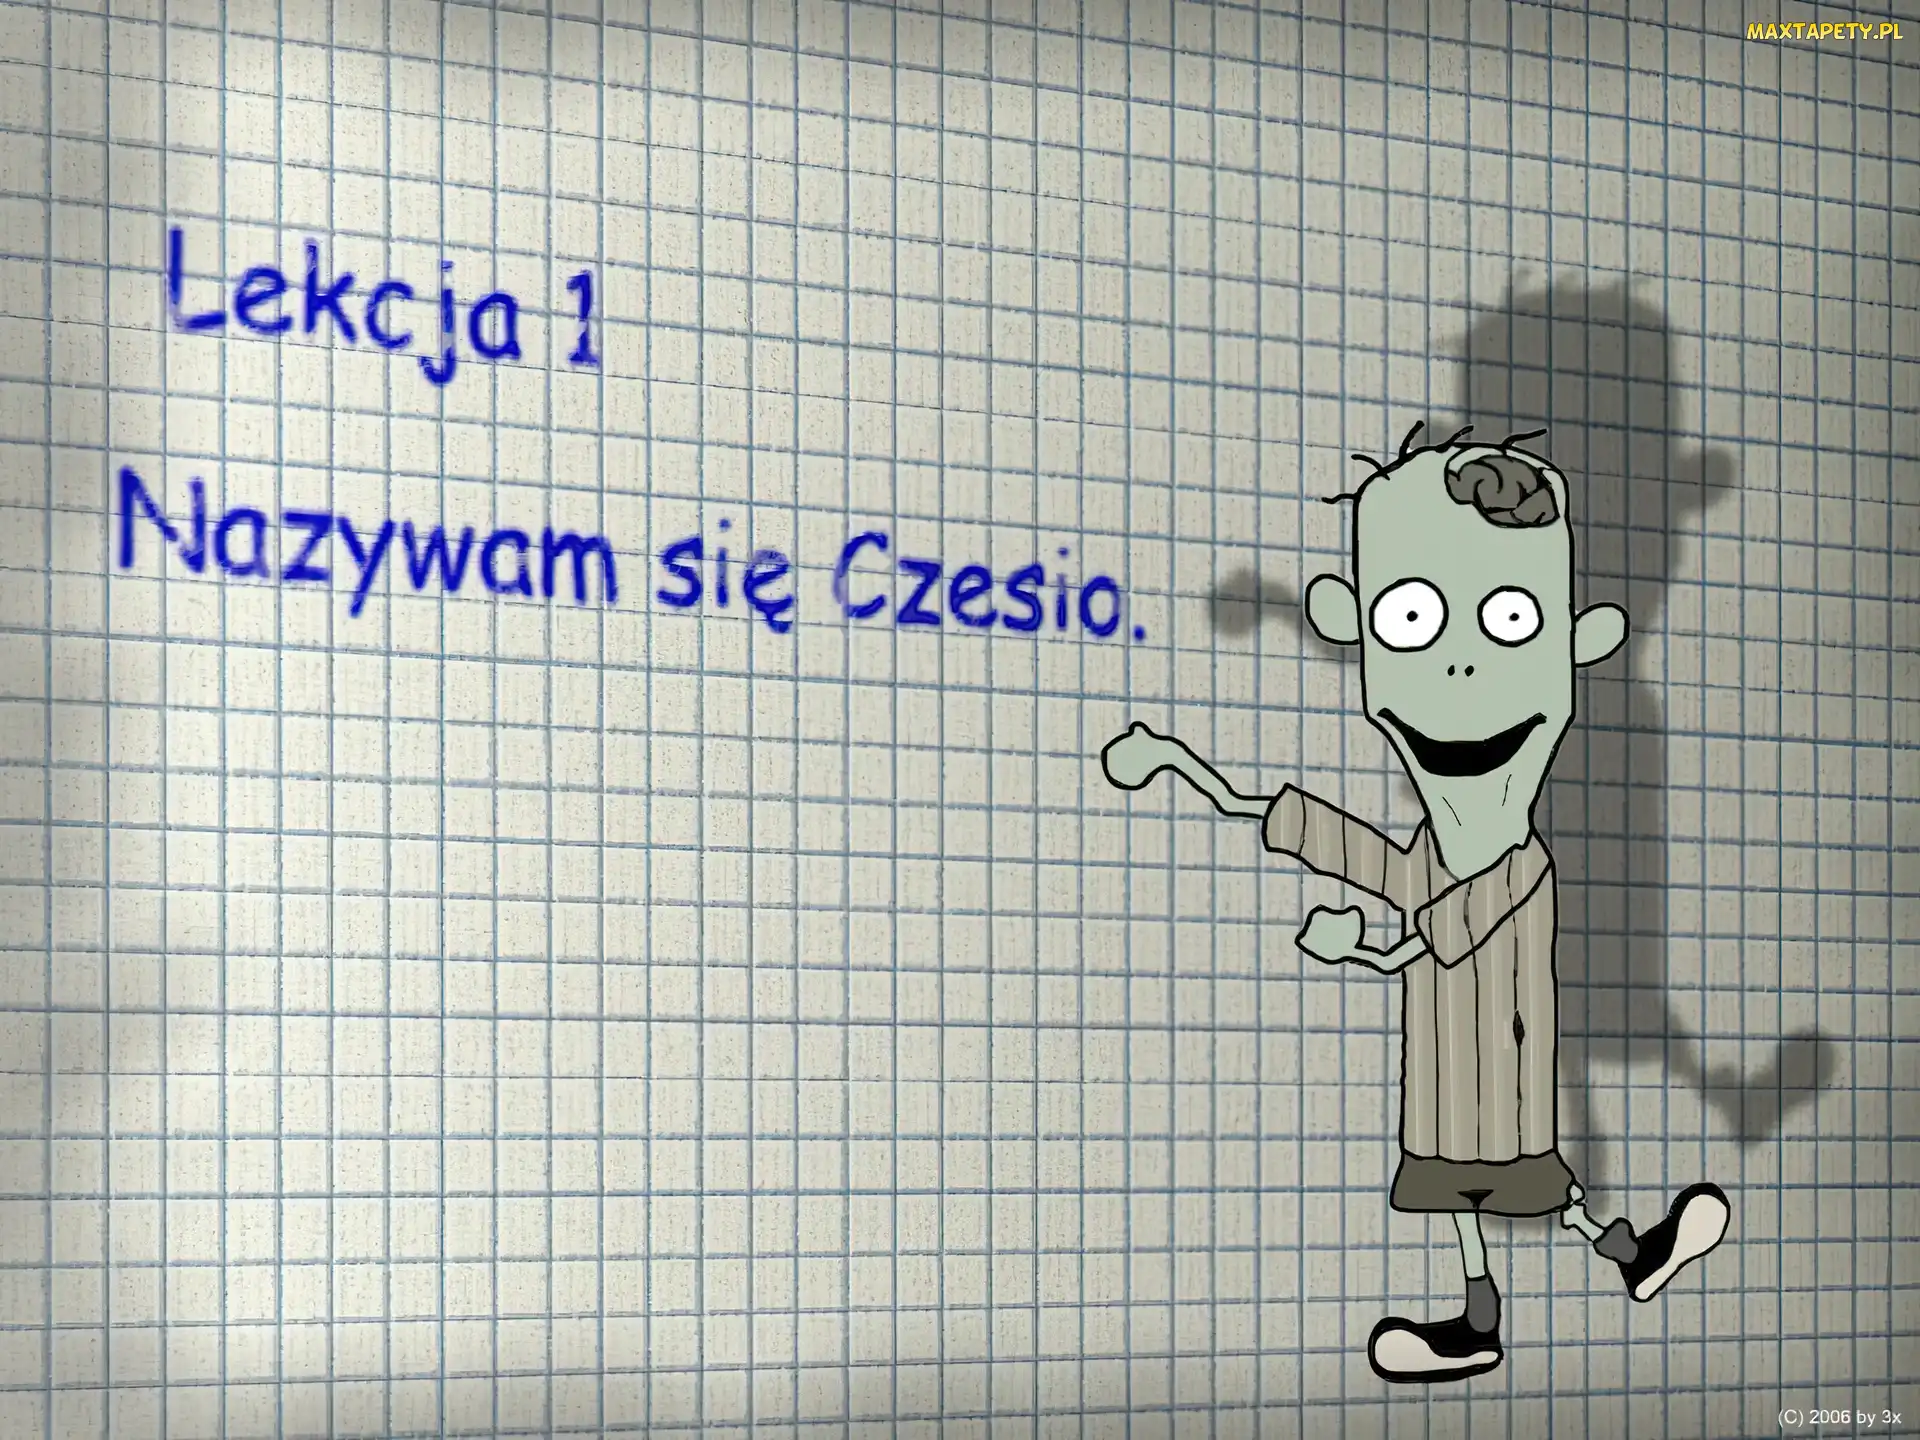 MAXTAPETY.PL
Lekcja 1
Nazywam się Czesio.
(C) 2006 by 3x